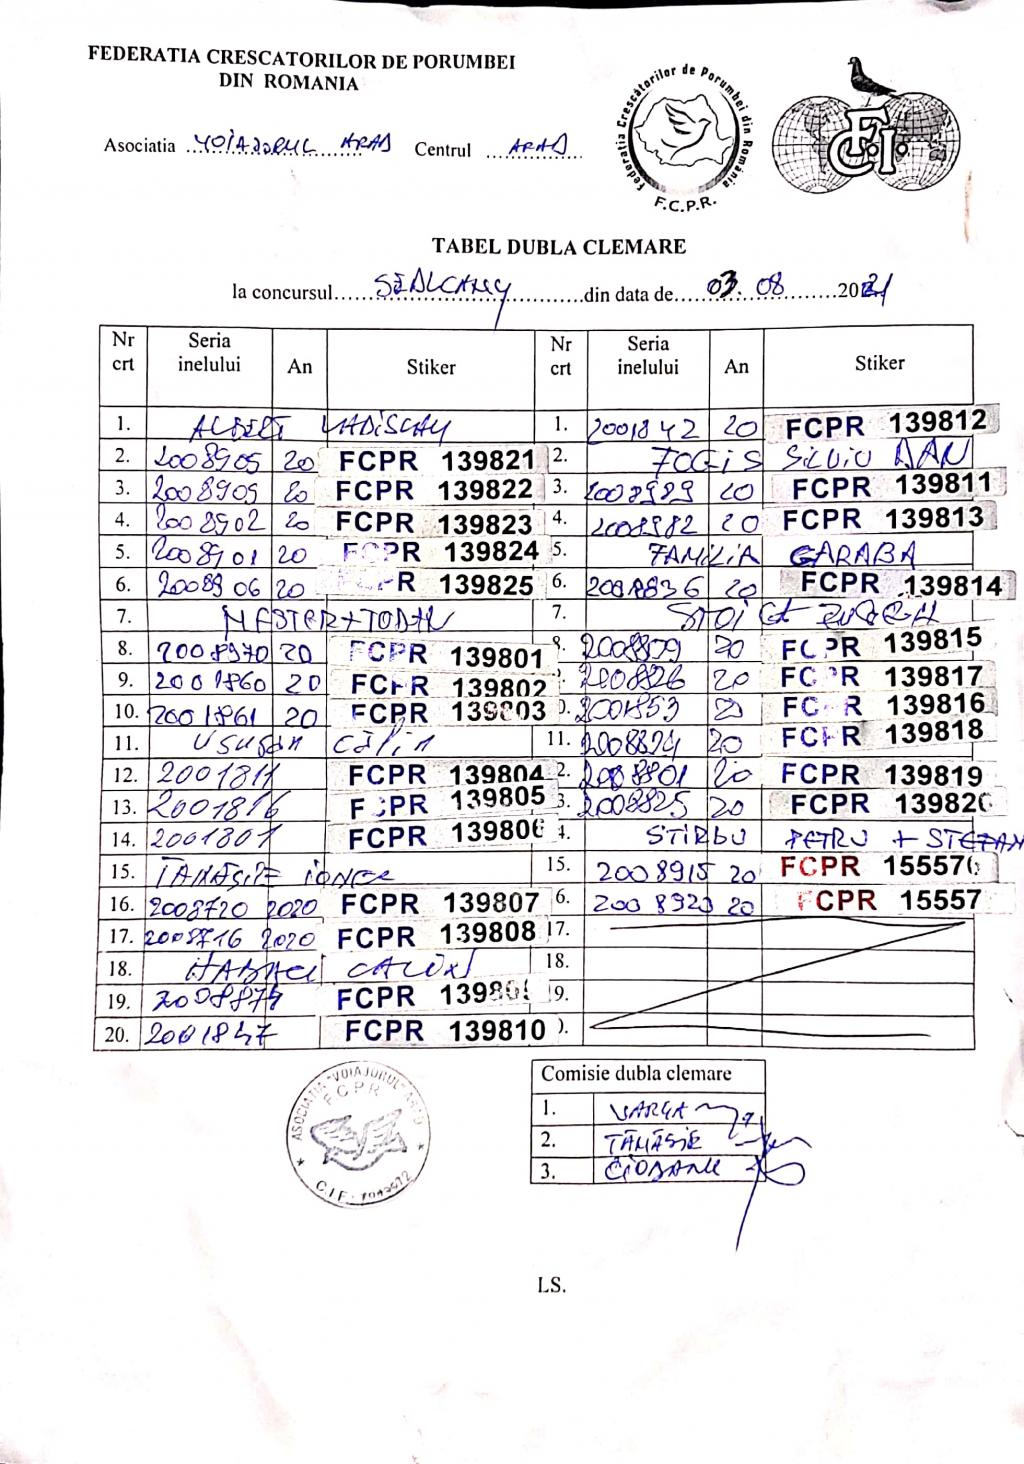 FEDERATIA CRESCATORILOR DE PORUMBEI
DIN ROMANIA
Federatia Crescătorilor de Porumbei din România
F.C.P.R.
F.C.I.
Asociatia VOIAJORUL ARAD Centrul ARAD
TABEL DUBLA CLEMARE
la concursul din data de 03.08 2021
Nr crt Seria inelului An Stiker Nr crt Seria inelului An Stiker
1. ALBERT 1. 2001842 20 FCPR 139812
2. 2008905 20 FCPR 139821 2. SILVIU DAN
3. 2008909 20 FCPR 139822 3. 2008989 20 FCPR 139811
4. 2008902 20 FCPR 139823 4. 2008982 20 FCPR 139813
5. 2008901 20 FCPR 139824 5. FAMILIA GARABA
6. 2008906 20 FCPR 139825 6. 20 FCPR 139814
7. 7.
8. 2008970 20 FCPR 139801 8. 2008809 20 FCPR 139815
9. 2001860 20 FCPR 139802 2008826 20 FCPR 139817
10. 2001861 20 FCPR 139803 2001853 20 FCPR 139816
11. CĂLIN 11. 2008824 20 FCPR 139818
12. 2001811 FCPR 139804 2. 2008801 20 FCPR 139819
13. 2001816 FCPR 139805 3. 2008825 20 FCPR 139820
14. 2001801 FCPR 139806 4. STIRBU PETRU + STEFAN
15. TANASIE 15. 2008915 20 FCPR 155576
16. 2008720 2020 FCPR 139807 6. 2008923 20 FCPR 15557
17. 2008716 2020 FCPR 139808 17.
18. 18.
19. 2008874 FCPR 9.
20. 2001847 FCPR 139810
ASOCIATIA "VOIAJORUL" ARAD
FCPR
C.I.F.
Comisie dubla clemare
1. VARGA
2. TĂNASIE
3. CIOBANU
LS.